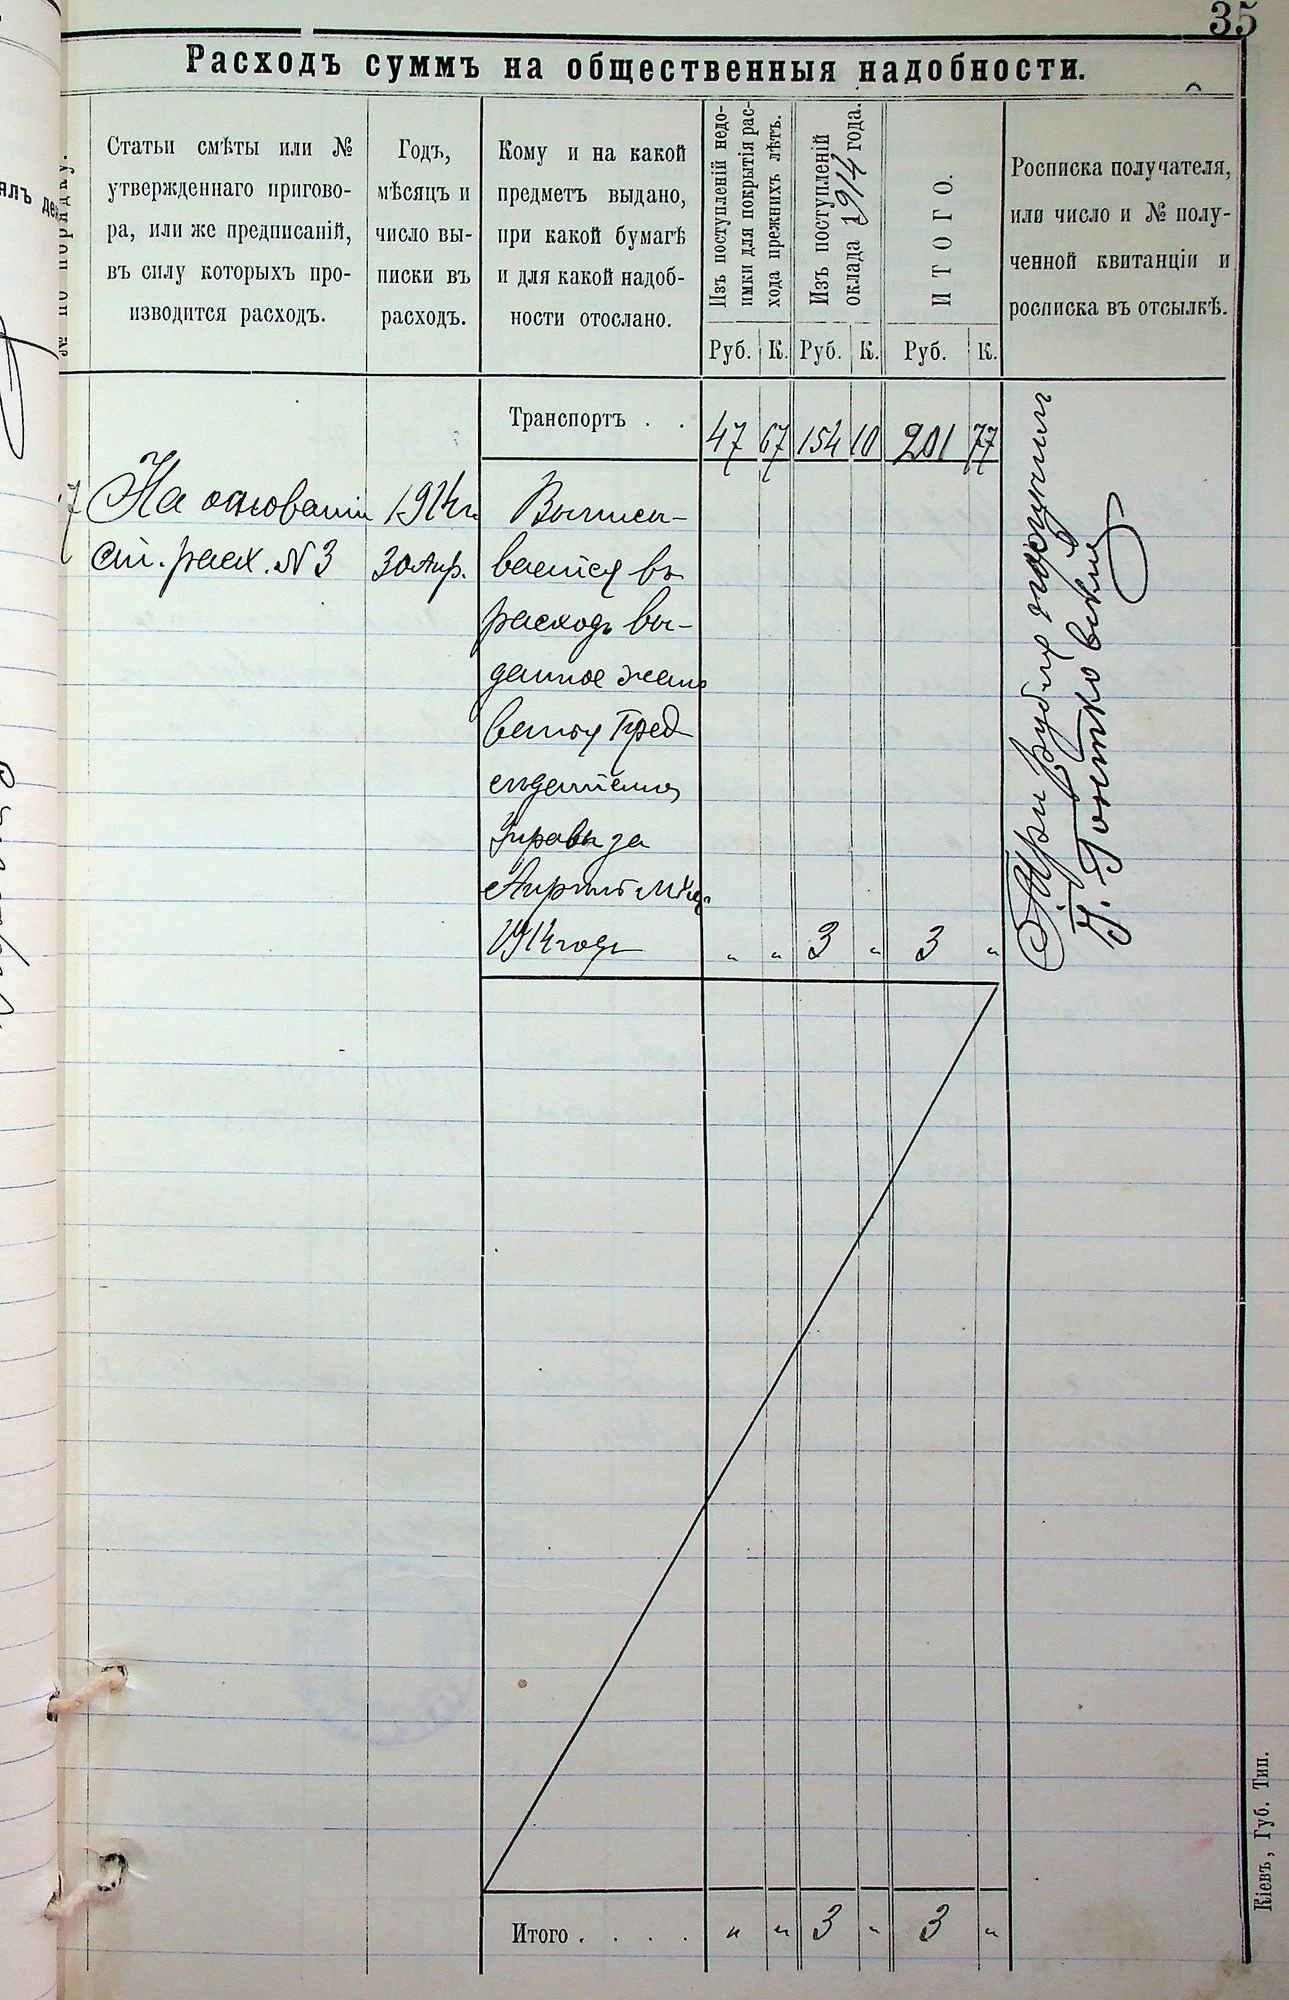 35
Расходъ суммъ на общественныя надобности.
№ по порядку.
Статьи смѣты или №
утвержденнаго пригово-
ра, или же предписаній,
въ силу которыхъ про-
изводится расходъ.
Годъ,
мѣсяцъ и
число вы-
писки въ
расходъ.
Кому и на какой
предметъ выдано,
при какой бумагѣ
и для какой надоб-
ности отослано.
Изъ поступленій недо-
имки для покрытія рас-
хода прежнихъ лѣтъ.
Изъ поступленій
оклада 1914 года.
ИТОГО.
Росписка получателя,
или число и № полу-
ченной квитанціи и
росписка въ отсылкѣ.
Руб. К. Руб. К. Руб. К.
Транспортъ . . 47 67 154 10 201 77
7 На основаніи 1914 г. Выписы-
ст. расх. № 3 30 Апр. вается въ
расходъ вы-
данное жало
ванья Пред
сѣдателю
Управы за
Апрѣль м-цъ
1914 годъ „ „ 3 „ 3 „
Три рубля получилъ
Итого . . . . „ „ 3 „ 3 „
Кіевъ, Губ. Тип.